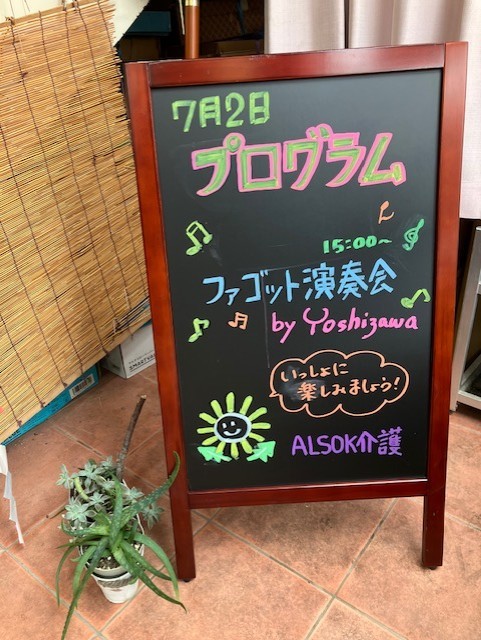 7月2日
プログラム
15:00〜
ファゴット演奏会
by Yoshizawa
いっしょに
楽しみましょう!
ALSOK介護